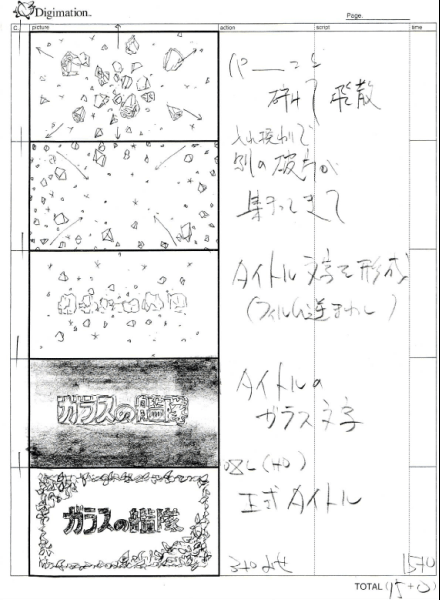 Digimation.
Page.
C.
picture
action
script
time
パーンと
砕けて飛散
入れ換わりで
別の破片が
集まってきて
タイトル文字を形成
(フィルム逆まわし)
ガラスの艦隊
タイトルの
ガラス文字
O.L(1+0)
ガラスの艦隊
正式タイトル
3+0 みせ
15+0
TOTAL (15+0)